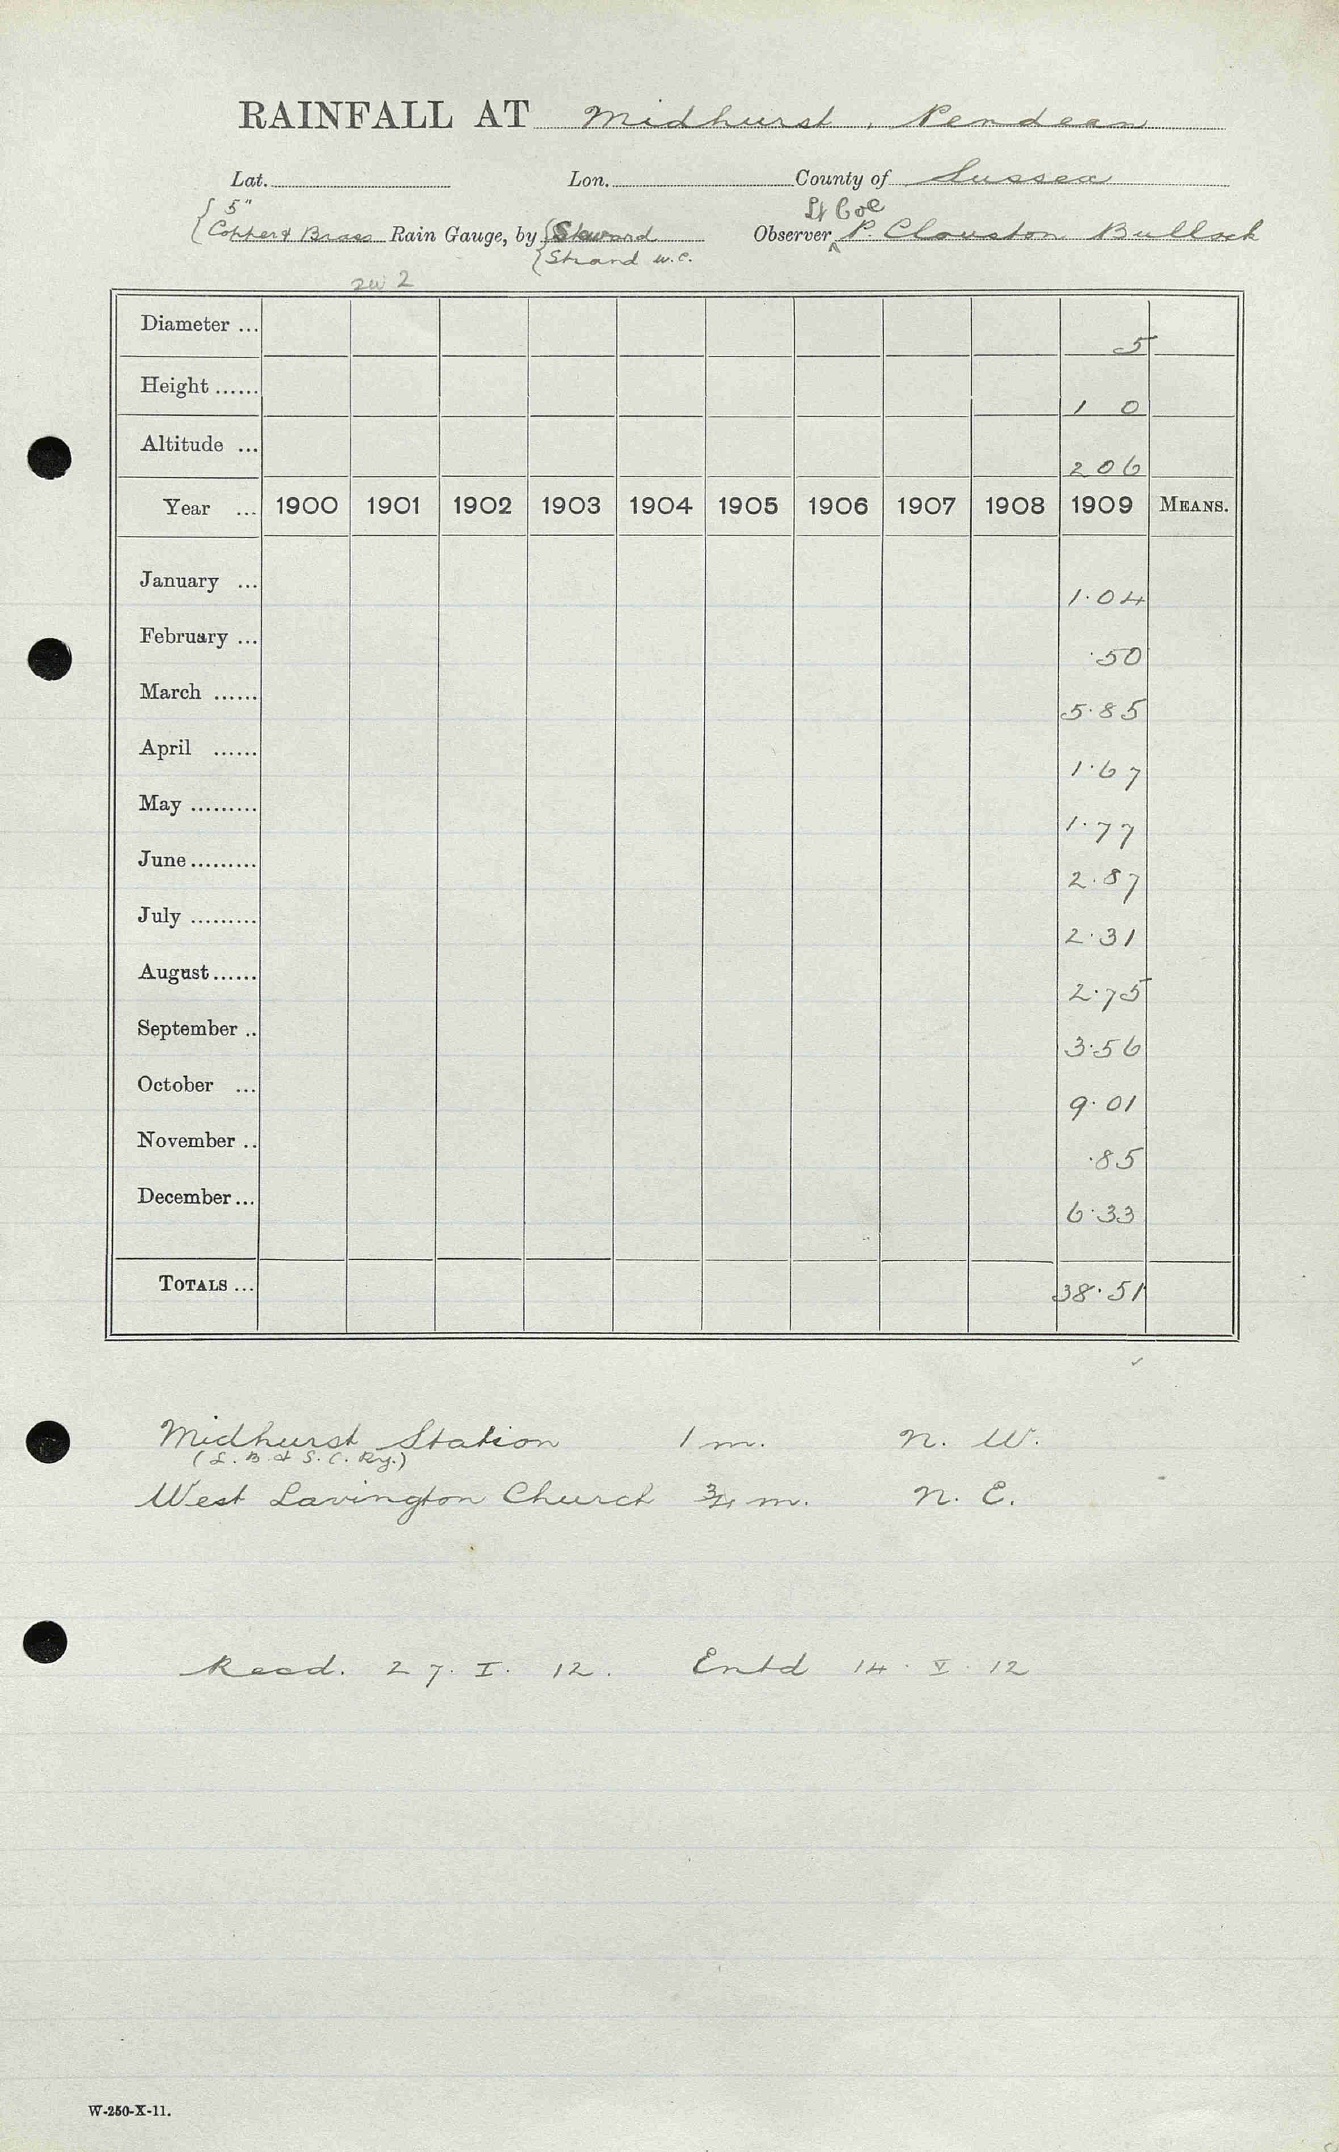 RAINFALL AT Midhurst, Pendean
Lat. Lon. County of Sussex
5" Lt Col
Copper & Brass Rain Gauge, by Steward Observer P. Clouston Bullock
Strand W.C.
2W 2
Diameter ... 5
Height ...... 1 0
Altitude ... 206
Year ... 1900 1901 1902 1903 1904 1905 1906 1907 1908 1909 MEANS.
January ... 1.04
February ... .50
March ...... 5.85
April ...... 1.67
May ......... 1.77
June ......... 2.87
July ......... 2.31
August ...... 2.75
September .. 3.56
October ... 9.01
November .. .85
December ... 6.33
TOTALS ... 38.51
Midhurst Station 1 m. N. W.
(L. B. & S. C. Ry.)
West Lavington Church ¾ m. N. E.
Recd. 27. I. 12. Entd 14. V. 12
W-250-X-11.